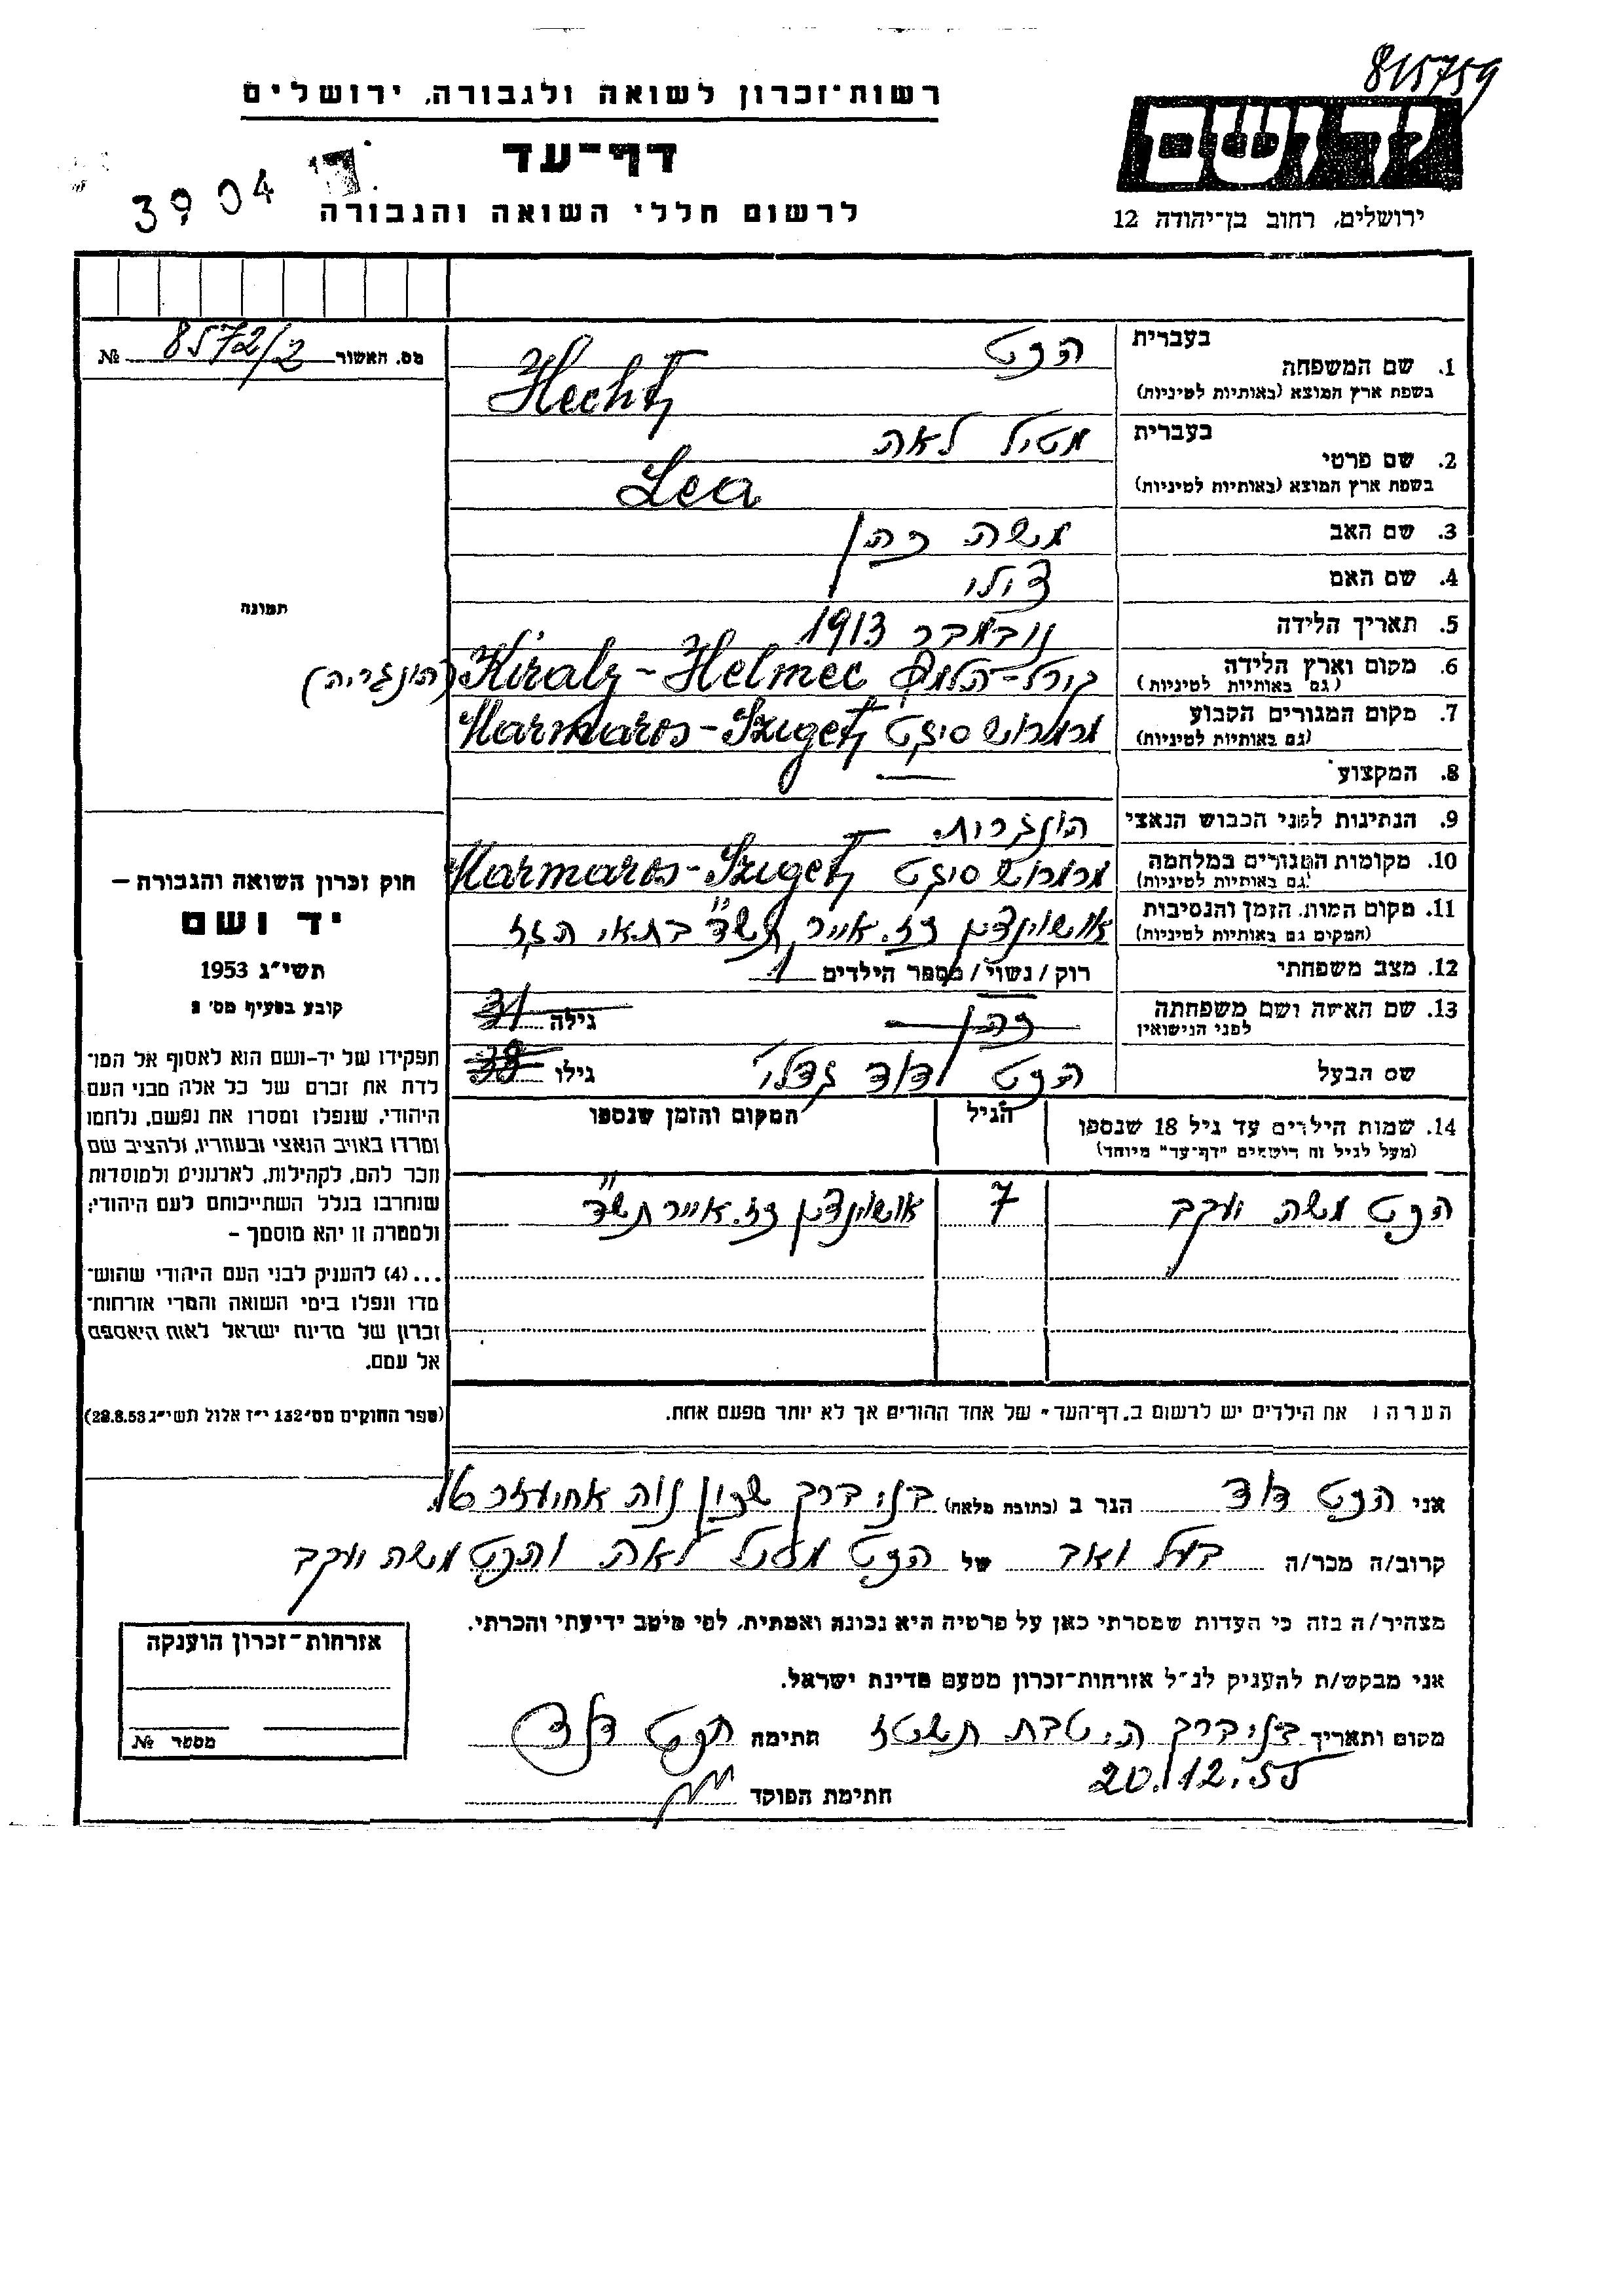 815759
יד ושם
רשות-זכרון לשואה ולגבורה, ירושלים
דף-עד
3904
לרשום חללי השואה והגבורה
ירושלים, רחוב בן-יהודה 12
מס. האשור 8572/2 №
בעברית
1. שם המשפחה הכט
בשפת ארץ המוצא (באותיות לטיניות) Hecht
בעברית
2. שם פרטי מטיל לאה
בשפת ארץ המוצא (באותיות לטיניות) Lea
3. שם האב משה כהן
4. שם האם
5. תאריך הלידה נובמבר 1913
6. מקום וארץ הלידה Kiraly-Helmec (הונגריה)
(גם באותיות לטיניות)
7. מקום המגורים הקבוע מרמרוש סיגט Marmaros-Sziget
(גם באותיות לטיניות)
8. המקצוע —
9. הנתינות לפני הכבוש הנאצי הונגרית.
10. מקומות המגורים במלחמה מרמרוש סיגט Marmaros-Sziget
(גם באותיות לטיניות)
11. מקום המות, הזמן והנסיבות אושוינצים כז. אייר תש"ד בתאי הגז
(המקום גם באותיות לטיניות)
12. מצב משפחתי רוק / נשוי / מספר הילדים 1
13. שם האישה ושם משפחתה כהן גילה 31
לפני הנישואין
שם הבעל הכט דוד גדלי' גילו 38
14. שמות הילדים עד גיל 18 שנספו הגיל המקום והזמן שנספו
(מעל לגיל זה רושמים "דף-עד" מיוחד)
הכט משה יעקב 7 אושוינצים כז. אייר תש"ד
הערה: את הילדים יש לרשום ב"דף-העד" של אחד ההורים אך לא יותר מפעם אחת.
תמונה
חוק זכרון השואה והגבורה –
יד ושם
תשי"ג 1953
קובע בסעיף מס' 2
תפקידו של יד-ושם הוא לאסוף אל המו־
לדת את זכרם של כל אלה מבני העם
היהודי, שנפלו ומסרו את נפשם, נלחמו
ומרדו באויב הנאצי ובעוזריו, ולהציב שם
וזכר להם, לקהילות, לארגונים ולמוסדות
שנחרבו בגלל השתייכותם לעם היהודי;
ולמטרה זו יהא מוסמך –
...(4) להעניק לבני העם היהודי שהוש־
מדו ונפלו בימי השואה והמרי אזרחות־
זכרון של מדינת ישראל לאות היאספם
אל עמם.
(ספר החוקים מס' 132 י"ז אלול תשי"ג 28.8.53)
אני הכט דוד הגר ב (כתובת מלאה) בני ברק שכון נוה אחיעזר
קרוב/ה מכר/ה בעל ואב של הכט מטיל לאה והכט משה יעקב
מצהיר/ה בזה כי העדות שמסרתי כאן על פרטיה היא נכונה ואמתית, לפי מיטב ידיעתי והכרתי.
אני מבקש/ת להעניק לנ"ל אזרחות-זכרון מטעם מדינת ישראל.
מקום ותאריך בני ברק ה. טבת תשטז חתימה הכט דוד
20.12.55
חתימת הפוקד
אזרחות-זכרון הוענקה
מספר №